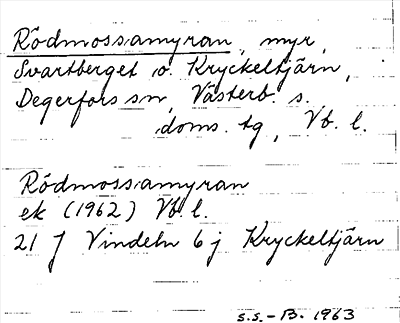 Rödmossamyran, myr,
Svartberget o. Kryckeltjärn,
Degerfors sn, Västerb. s.
doms. tg, Vb. l.
Rödmossamyran
ek (1962) Vb. l.
21 J Vindeln 6 j Kryckeltjärn
s.s. - B. 1963